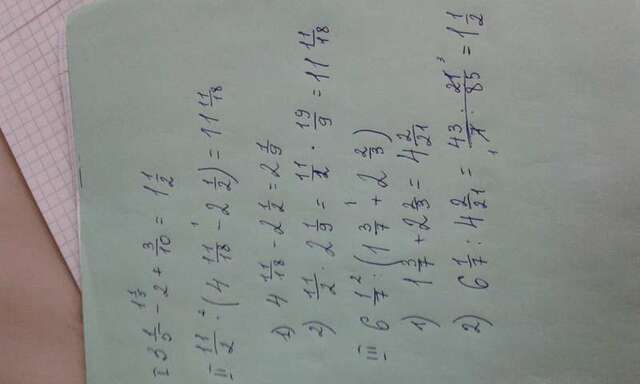 I 3 1/5 - 2 + 3/10 = 1 1/2
II 11/2 · (4 11/18 - 2 1/2) = 11 11/18
1) 4 11/18 - 2 1/2 = 2 1/9
2) 11/2 · 2 1/9 = 11/2 · 19/9 = 11 11/18
III 6 1/7 : (1 3/7 + 2 2/3)
1) 1 3/7 + 2 2/3 = 4 2/21
2) 6 1/7 : 4 2/21 = 43 · 21 3 / 1 7 · 85 = 1 1/2